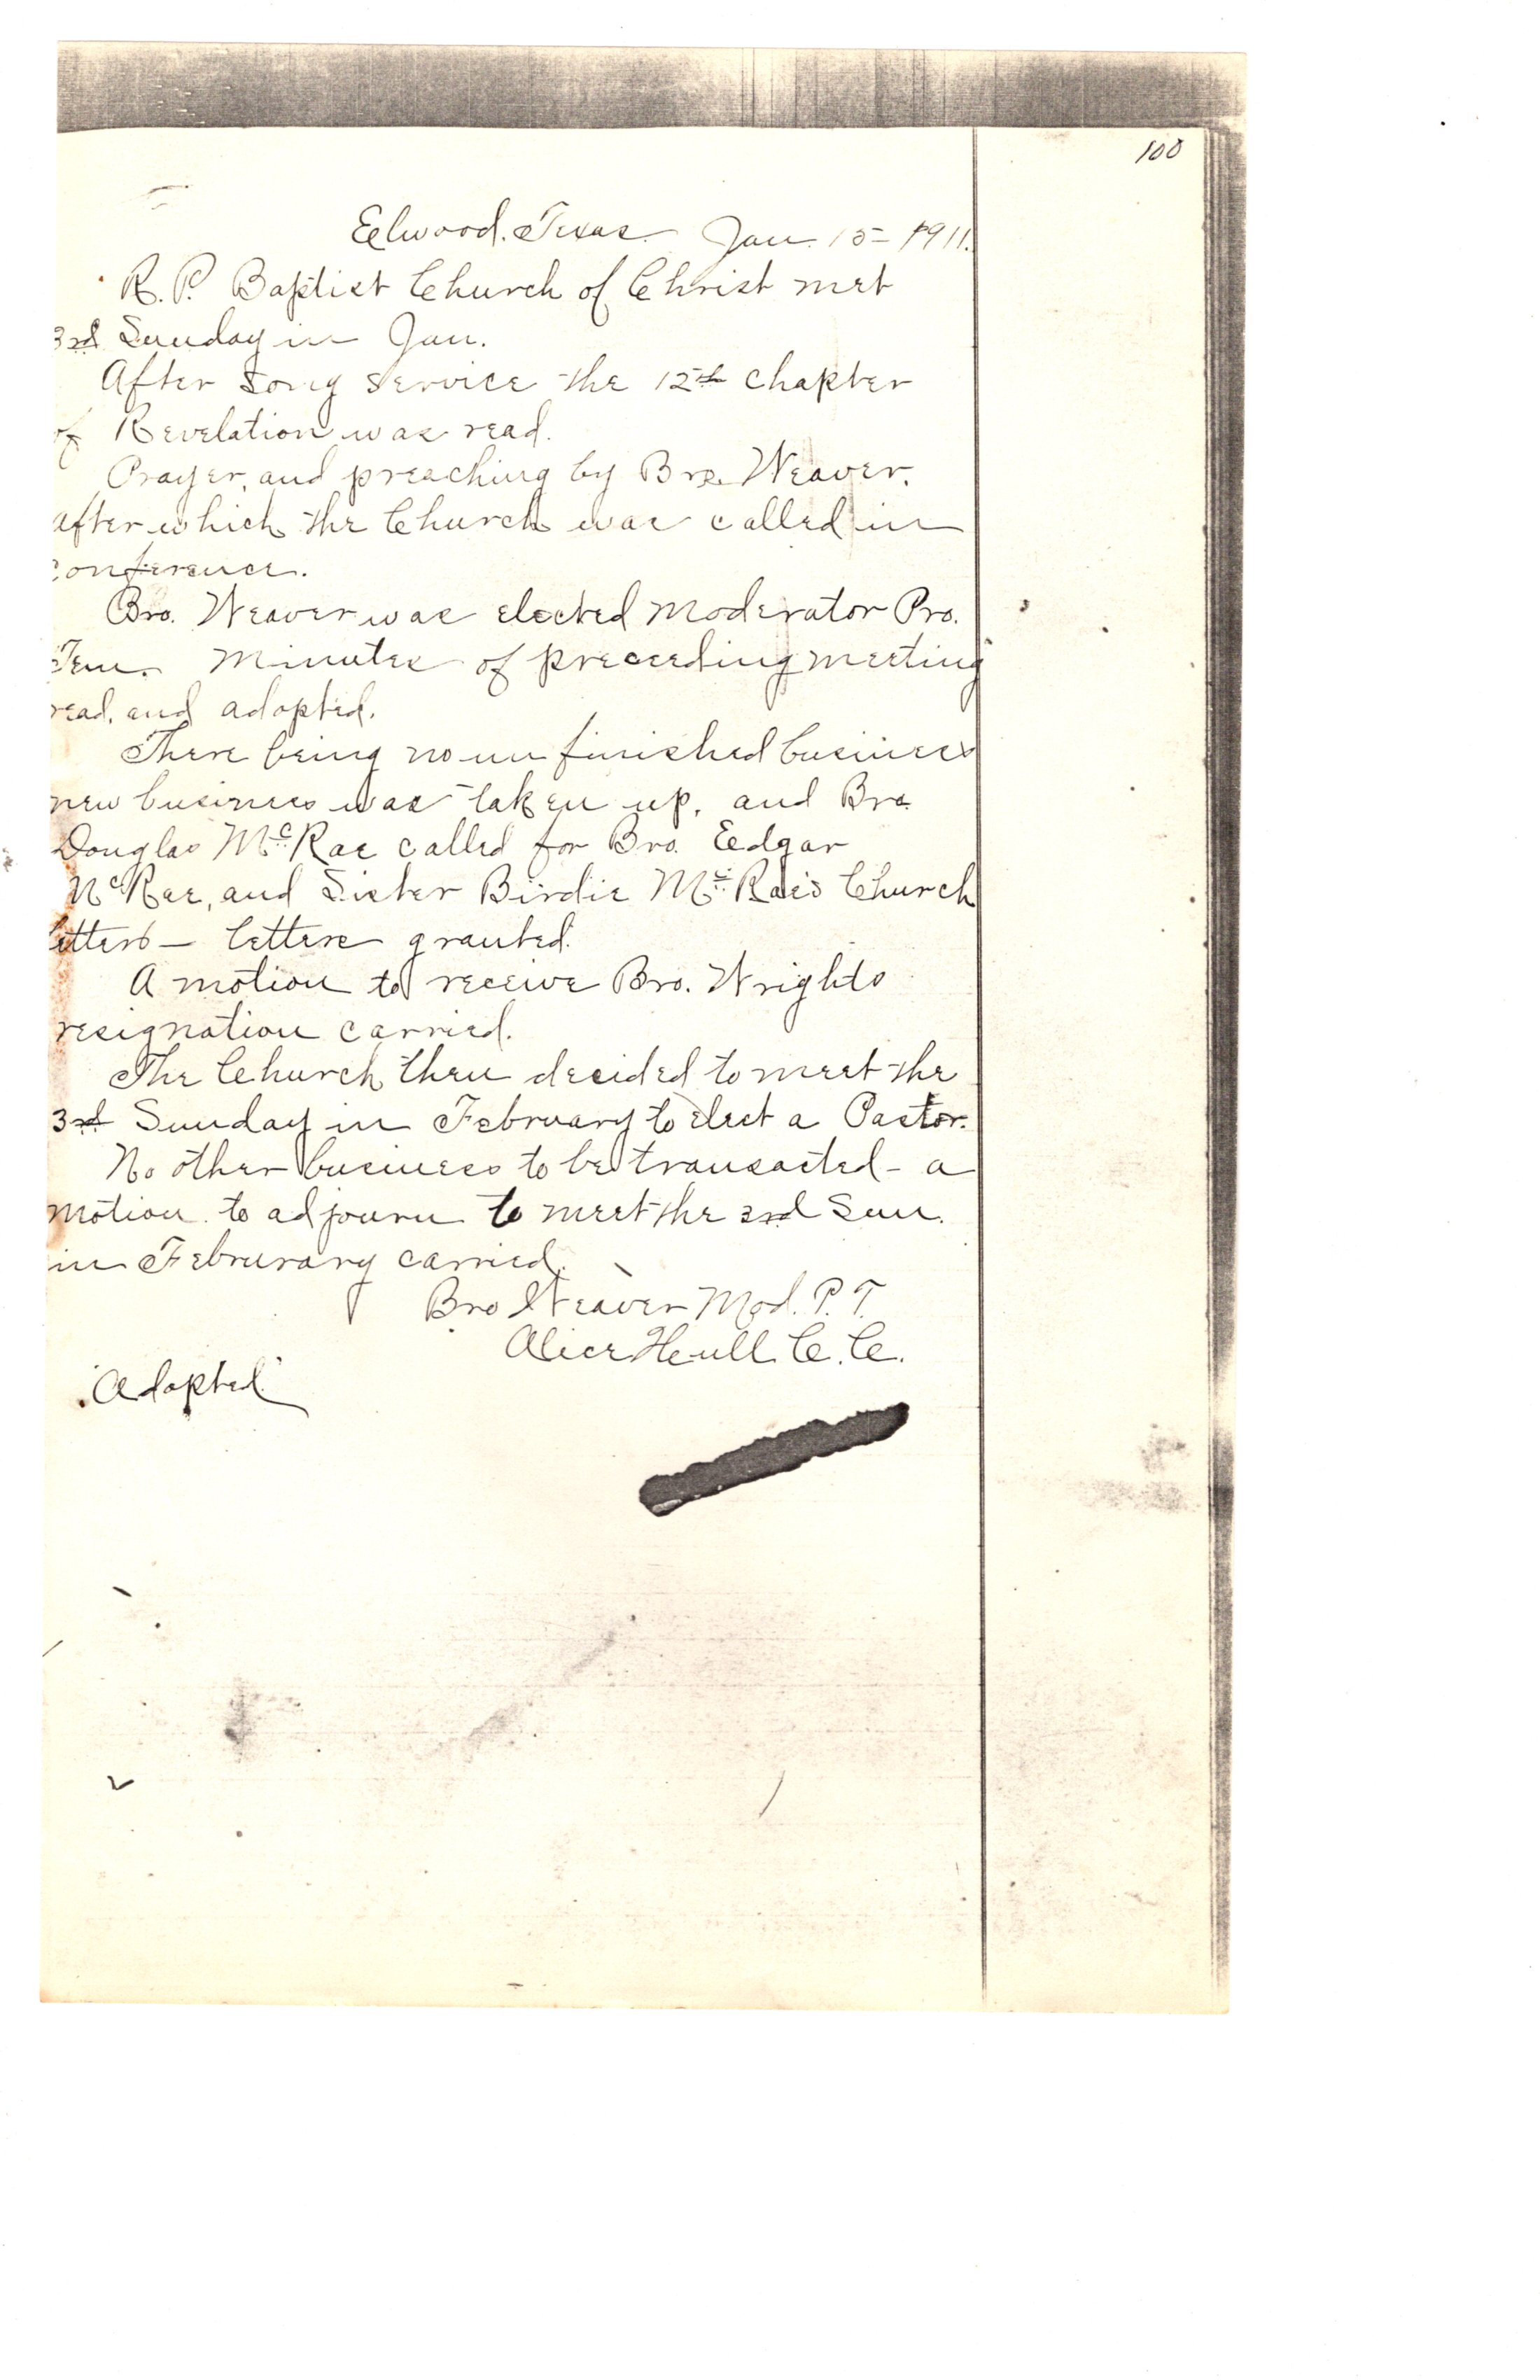 100
Elwood. Texas. Jan. 15 - 1911.
R. P. Baptist Church of Christ met
3rd Sunday in Jan.
After song service the 12th chapter
of Revelation was read.
Prayer, and preaching by Bro. Weaver.
after which the Church was called in
conference.
Bro. Weaver was elected moderator Pro.
Tem. Minutes of preceeding meeting
read, and adopted.
There being no unfinished business
new business was taken up, and Bro.
Douglas McRae called for Bro. Edgar
McRae, and Sister Birdie McRae's Church
letters - letters granted.
A motion to receive Bro. Wrights
resignation carried.
The Church then decided to meet the
3rd Sunday in February to elect a Pastor.
No other business to be transacted - a
motion to adjourn to meet the 3rd Sun.
in Februrary carried.
Bro Weaver Mod. P. T.
Alice Hull C. C.
Adopted